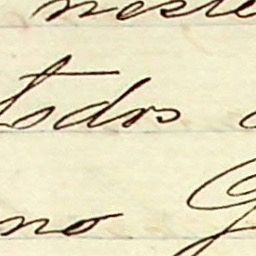 neste
todos
no G